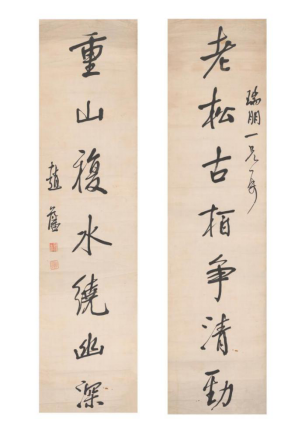 老松古栢争清勁
瑞朋一兄正
重山複水繞幽深
趙舊